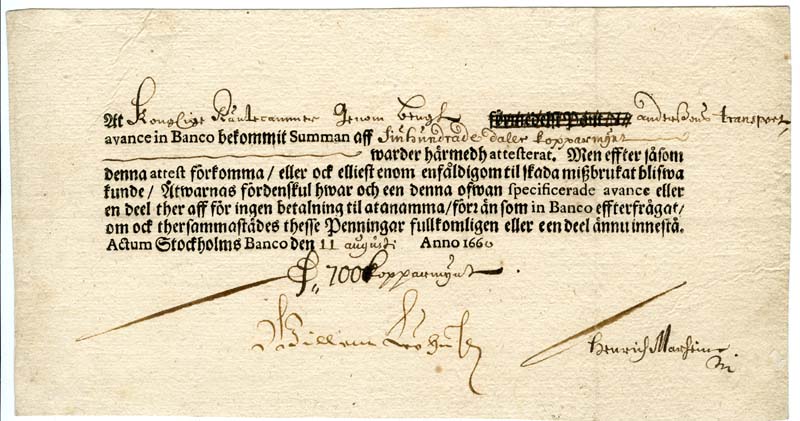 At Konglige Räntecammer Genom Bengt anderssons transport
avance in Banco bekommit Summan aff Siuhundrade daler koppar mÿnt
warder härmedh attesterat. Men effter såsom
denna attest förkomma / eller ock elliest enom enfåldigom til skada mißbrukat bliswa
kunde / Atwarnas fördenskul hwar och een denna ofwan specificerade avance eller
en deel ther aff för ingen betalning til at anamma / förr än som in Banco effterfrågat /
om ock thersammastädes thesse Penningar fullkomligen eller een deel ännu innestå.
Actum Stockholms Banco den 11 augusti Anno 1660
700 koppar mÿnt
Willem
Henrich